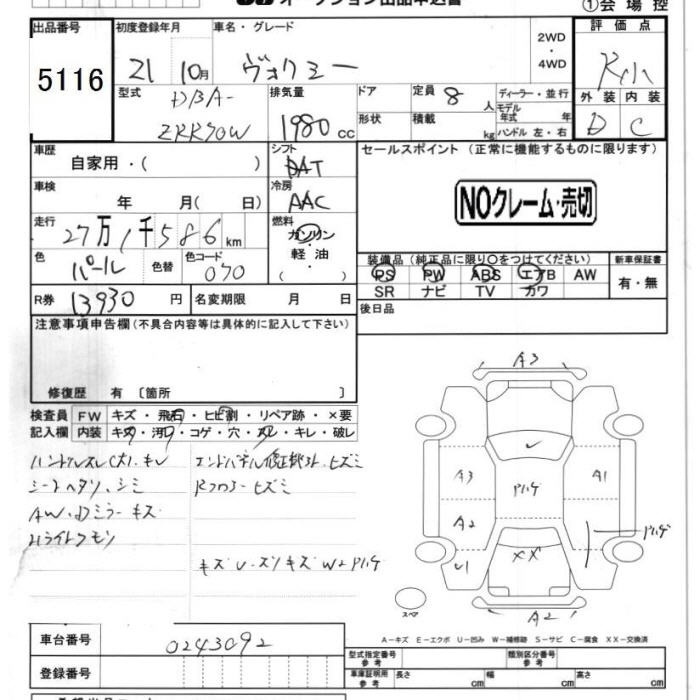 オークション出品申込書
①会場控
出品番号 5116
初度登録年月 21 10月
車名・グレード ヴォクシー
2WD・4WD
評価点
型式 DBA-
ZRR70W
排気量 1980 cc
ドア
定員 8 人
ディーラー・並行
形状
積載 kg
モデル年式 年
ハンドル 左・右
外装 内装
D C
車歴 自家用・( )
シフト DAT
セールスポイント (正常に機能するものに限ります)
車検 年 月( 日)
冷房 AAC
NOクレーム・売切
走行 27万1千586km
燃料 ガソリン・軽油・( )
色 パール 色替 色コード 070
装備品(純正品に限り○をつけてください)
新車保証書
PS PW ABS エアB AW
有・無
SR ナビ TV カワ
R券 13930円 名変期限 月 日
後日品
注意事項申告欄(不具合内容等は具体的に記入して下さい)
修復歴 有〔箇所 〕
検査員記入欄 FW キズ・飛石・ヒビ割・リペア跡・×要
内装 キズ・汚レ・コゲ・穴・スレ・キレ・破レ
ハンドルスレ
シートヘタリ、シミ
AW、Dミラーキズ
Hライトクモリ
キズU
A3
A3 A1
A2
U1 XX
A2
スペア
A-キズ E-エクボ U-凹み W-補修跡 S-サビ C-腐食 XX-交換済
車台番号 0243092
登録番号
型式指定番号 参考
類別区分番号 参考
車庫証明用 参考 長さ cm 幅 cm 高さ cm